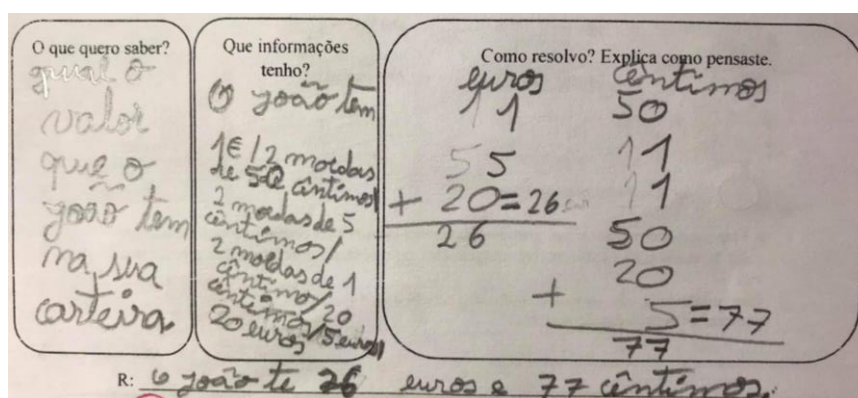 O que quero saber?
qual o
valor
que o
joão tem
na sua
carteira
Que informações
tenho?
O joão tem
1€/2 moedas
de 50 cêntimos/
2 moedas de 5
cêntimos/
2 moedas de 1
cêntimo/20
cêntimos/5 euros/
20 euros
Como resolvo? Explica como pensaste.
euros cêntimos
1 1 50
5 5 1 1
+ 20=26 1 1
26 50
20
+ 5=77
77
R: O joão te 26 euros e 77 cêntimos.